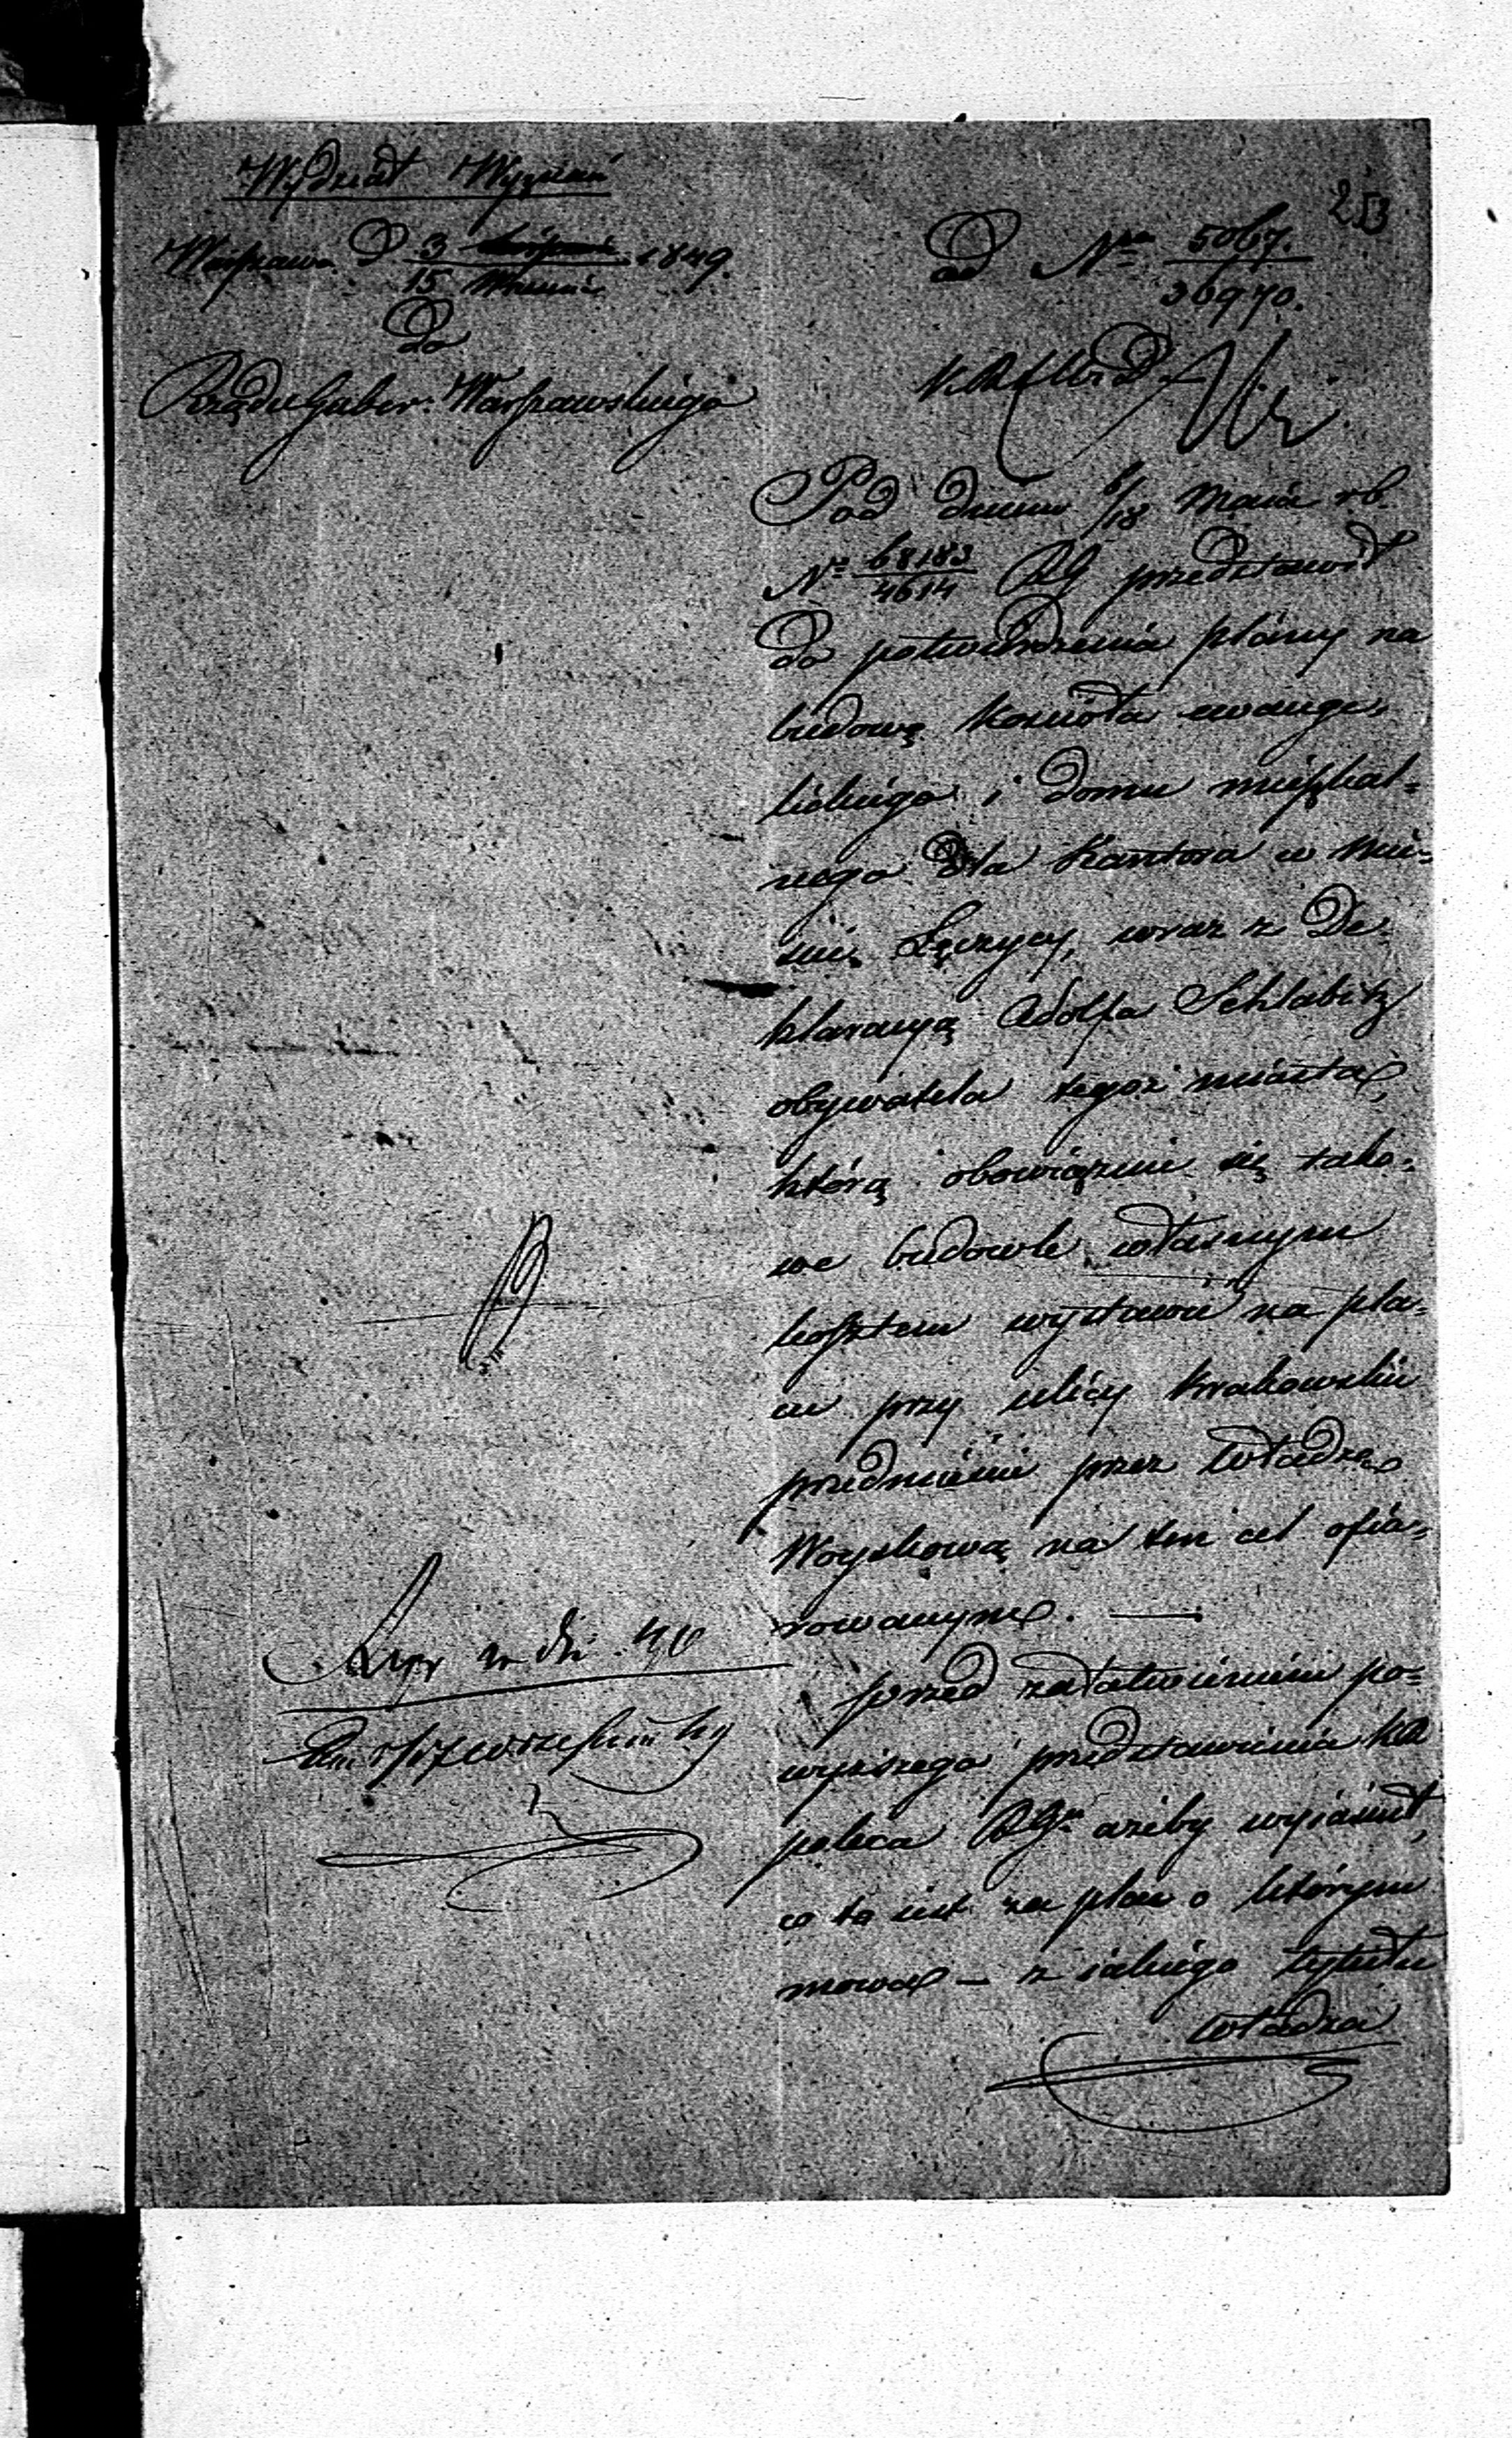 Wydział Wyznań
253
Warszawa D 3/15 Wrześnie 1849.
ad Nra 5067./36970.
Do
Rządu Guber: Warszawskiego
Pod dniem 6/18 Maia r.b.
No 68183/4614 RG przedstawił
do potwierdzenia plany na
budowę kościoła ewange„
lickiego i domu mieszkal=
nego dla Kantora w Mie=
ście Łęczycy, wraz z De
klaracyą Adolfa Schlabitz
obywatela tegoż miasta,
którą obowiązuie się tako=
we budowle własnym
kosztem wystawić na pla=
cu przy ulicy Krakowskie
przedmieście przez Władzę
Woyskową na ten cel ofia„
rowanym. —
przed załatwieniem po=
wyższego przedstawienia KR
poleca RGu ażeby wyiaśnił,
co to iest za plac o którym
mowa — z iakiego tytułu
Władza